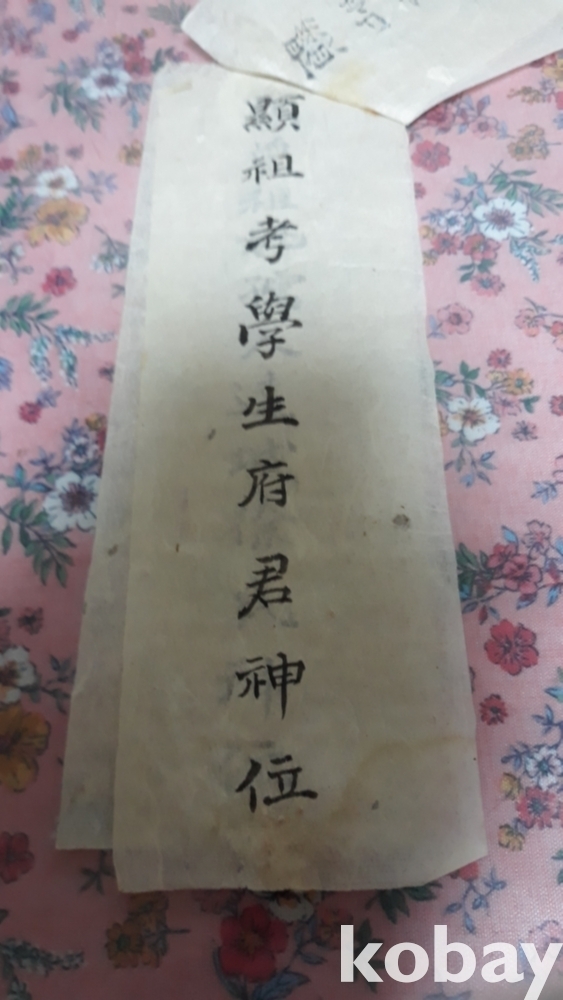 顯祖考學生府君神位
kobay